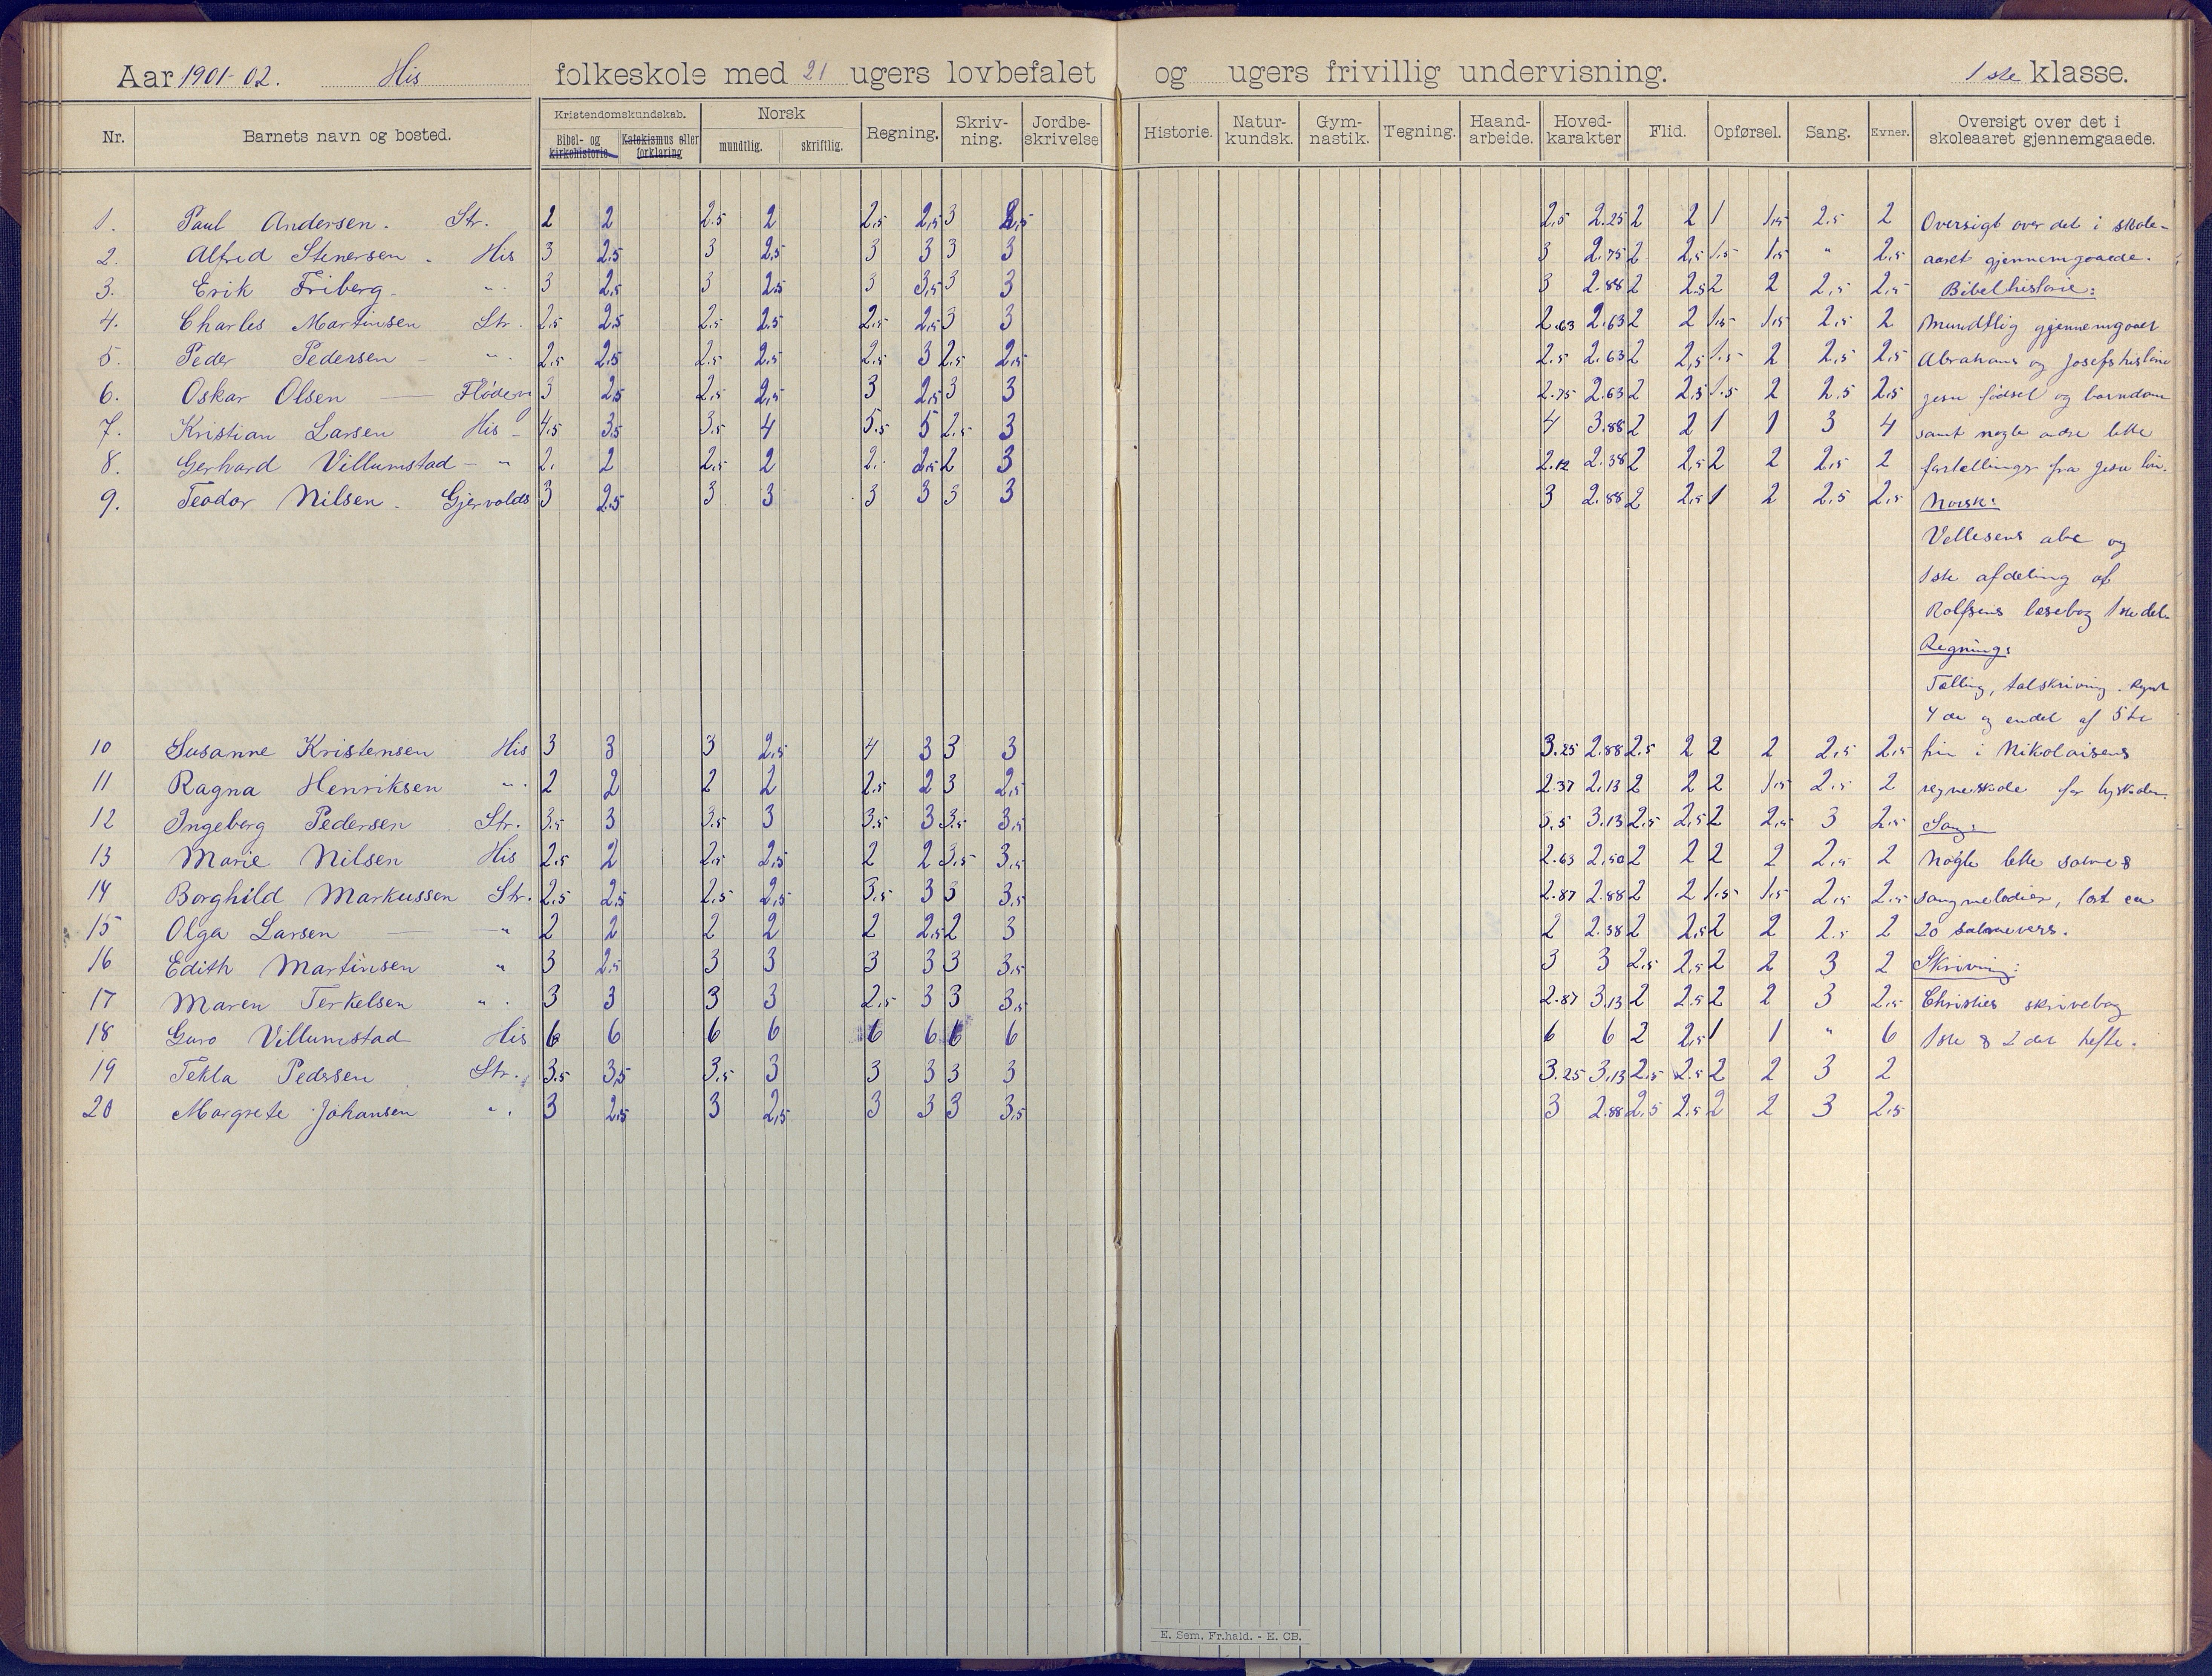 Aar 1901-02. His folkeskole med 21 ugers lovbefalet og ugers frivillig undervisning. 1ste klasse.
Nr. Barnets navn og bosted. Kristendomskundskab. Norsk Regning. Skriv-ning. Jordbe-skrivelse Historie. Natur-kundsk. Gym-nastik. Tegning. Haand-arbeide. Hoved-karakter Flid. Opførsel. Sang. Evner. Oversigt over det i skoleaaret gjennemgaaede.
Bibel- og kirkehistorie. Katekismus eller forklaring mundtlig. skriftlig.
1. Paul Andersen. Str. 2 2 2.5 2 2.5 2.5 3 2.5 2.5 2.25 2 2 1 1.5 2.5 2 Oversigt over det i skole-
2. Alfred Stenersen. His 3 2.5 3 2.5 3 3 3 3 3 2.75 2 2.5 1.5 1.5 " 2.5 aaret gjennemgaaede.
3. Erik Friberg. " 3 2.5 3 2.5 3 3.5 3 3 3 2.88 2 2.5 2 2 2.5 2.5 Bibelhistorie:
4. Charles Martinsen Str. 2.5 2.5 2.5 2.5 2.5 2.5 3 3 2.63 2.63 2 2 1.5 1.5 2.5 2 Mundtlig gjennemgaaet
5. Peder Pedersen " 2.5 2.5 2.5 2.5 2.5 3 2.5 2.5 2.5 2.63 2 2.5 1.5 2 2.5 2.5 Abrahams og Josefs historie
6. Oskar Olsen — Flødevi 3 2.5 2.5 2.5 3 2.5 3 3 2.75 2.63 2 2.5 1.5 2 2.5 2.5 Jesu fødsel og barndom
7. Kristian Larsen His 4.5 3.5 3.5 4 5.5 5 2.5 3 4 3.88 2 2 1 1 3 4 samt nogle andre lette
8. Gerhard Villumstad — " 2. 2 2.5 2 2. 2.5 2 3 2.12 2.38 2 2.5 2 2 2.5 2 fortællinger fra Jesu liv.
9. Teodor Nilsen. Gjervolds 3 2.5 3 3 3 3 3 3 3 2.88 2 2.5 1 2 2.5 2.5 Norsk:
abc og
1ste afdeling af
Rolfsens læsebog 1ste del.
Regning:
Tælling, talskrivning.
4de og endel af 5te
10 Susanne Kristensen His 3 3 3 2.5 4 3 3 3 3.25 2.88 2.5 2 2 2 2.5 2.5 i Nikolaisens
11 Ragna Henriksen " 2 2 2 2 2.5 2 3 2.5 2.37 2.13 2 2 2 1.5 2.5 2 for
12 Ingeborg Pedersen Str. 3.5 3 3.5 3 3.5 3 3.5 3.5 3.5 3.13 2.5 2.5 2 2.5 3 2.5 Sang:
13 Marie Nilsen His 2.5 2 2.5 2.5 2 2 3.5 3.5 2.63 2.50 2 2 2 2 2.5 2 Nogle lette salme &
14 Borghild Markussen Str. 2.5 2.5 2.5 2.5 3.5 3 3 3.5 2.87 2.88 2 2 1.5 1.5 2.5 2.5 sangmelodier, lært ca
15 Olga Larsen — " 2 2 2 2 2 2.5 2 3 2 2.38 2 2.5 2 2 2.5 2 20 salmevers.
16 Edith Martinsen " 3 2.5 3 3 3 3 3 3.5 3 3 2.5 2.5 2 2 3 2 Skrivning:
17 Maren Terkelsen " 3 3 3 3 2.5 3 3 3.5 2.87 3.13 2 2.5 2 2 3 2.5 Christies skrivebog
18 Guro Villumstad His 6 6 6 6 6 6 6 6 6 6 2 2.5 1 1 " 6 1ste & 2det hefte.
19 Tekla Pedersen Str. 3.5 3.5 3.5 3 3 3 3 3 3.25 3.13 2.5 2.5 2 2 3 2
20 Margrete Johansen " 3 2.5 3 2.5 3 3 3 3.5 3 2.88 2.5 2.5 2 2 3 2.5
E. Sem, Fr.hald. - E. CB.